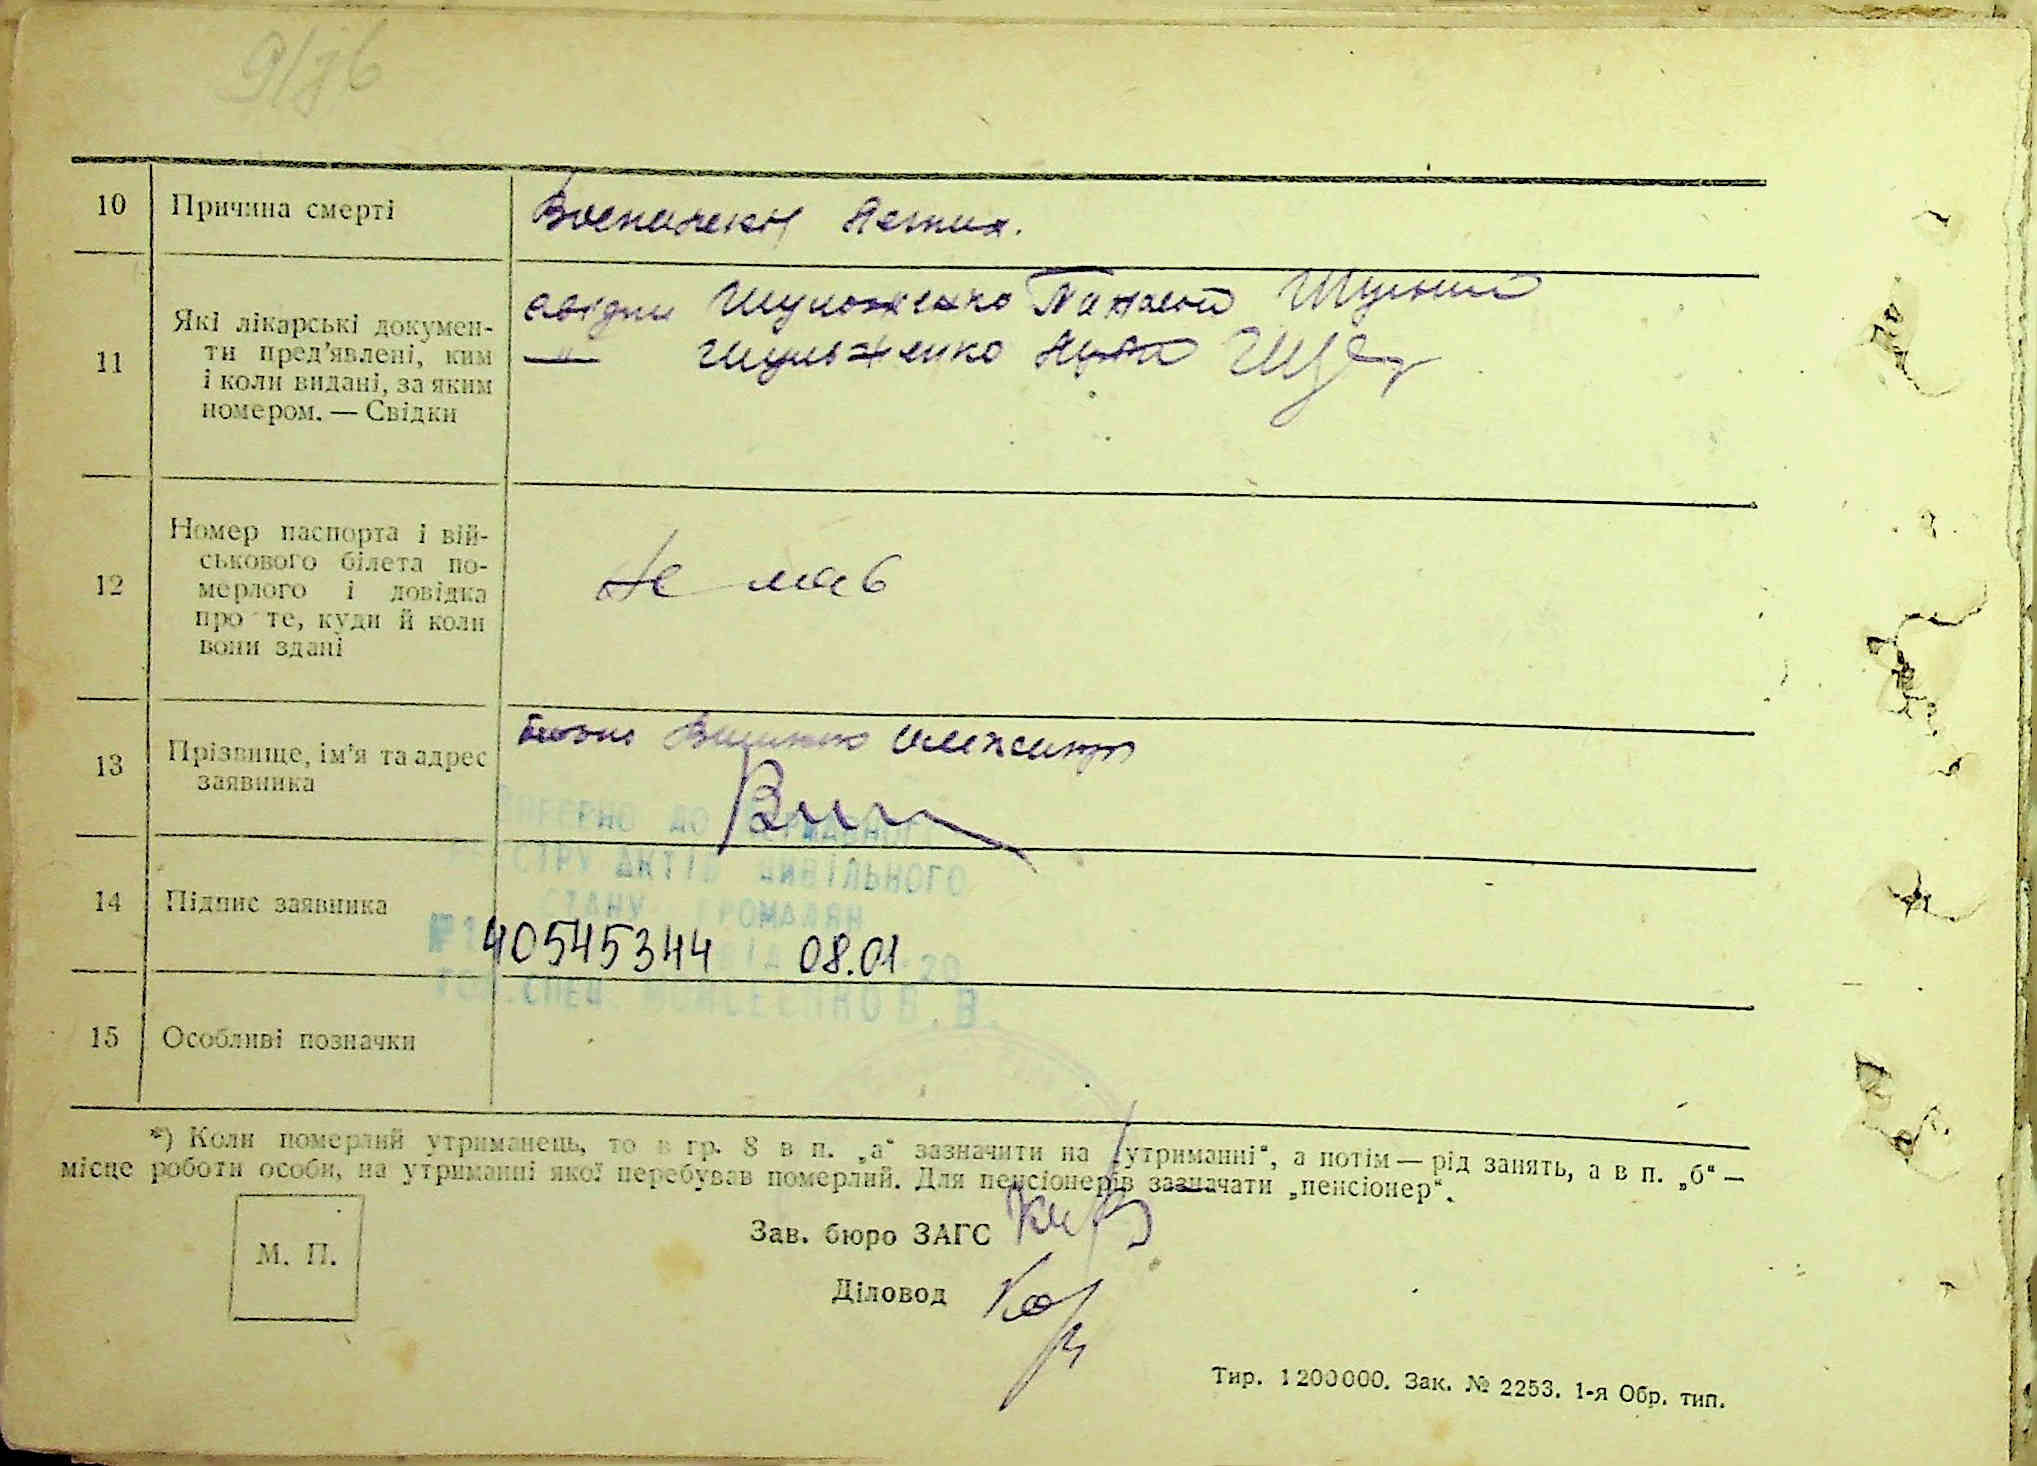 10 Причина смерті
11 Які лікарські докумен-
ти пред'явлені, ким
і коли видані, за яким
номером. — Свідки
свідки Шульженко
— " — Шульженко
12 Номер паспорта і вій-
ськового білета по-
мерлого і довідка
про те, куди й коли
вони здані
не мав
13 Прізвище, ім'я та адрес
заявника
Олександр
ВНЕСЕНО ДО ДЕРЖАВНОГО
РЕЄСТРУ АКТІВ ЦИВІЛЬНОГО
СТАНУ ГРОМАДЯН
14 Підпис заявника
№ 40545344 ВІД 08.01 20
ГОЛ.СПЕЦ. МОЙСЕЄНКО В.В.
15 Особливі позначки
*) Коли померлий утриманець, то в гр. 8 в п. „а“ зазначити на „утриманні“, а потім — рід занять, а в п. „б“ —
місце роботи особи, на утриманні якої перебував померлий. Для пенсіонерів зазначати „пенсіонер“.
Зав. бюро ЗАГС
М. П.
Діловод
Тир. 1200000. Зак. № 2253. 1-я Обр. тип.